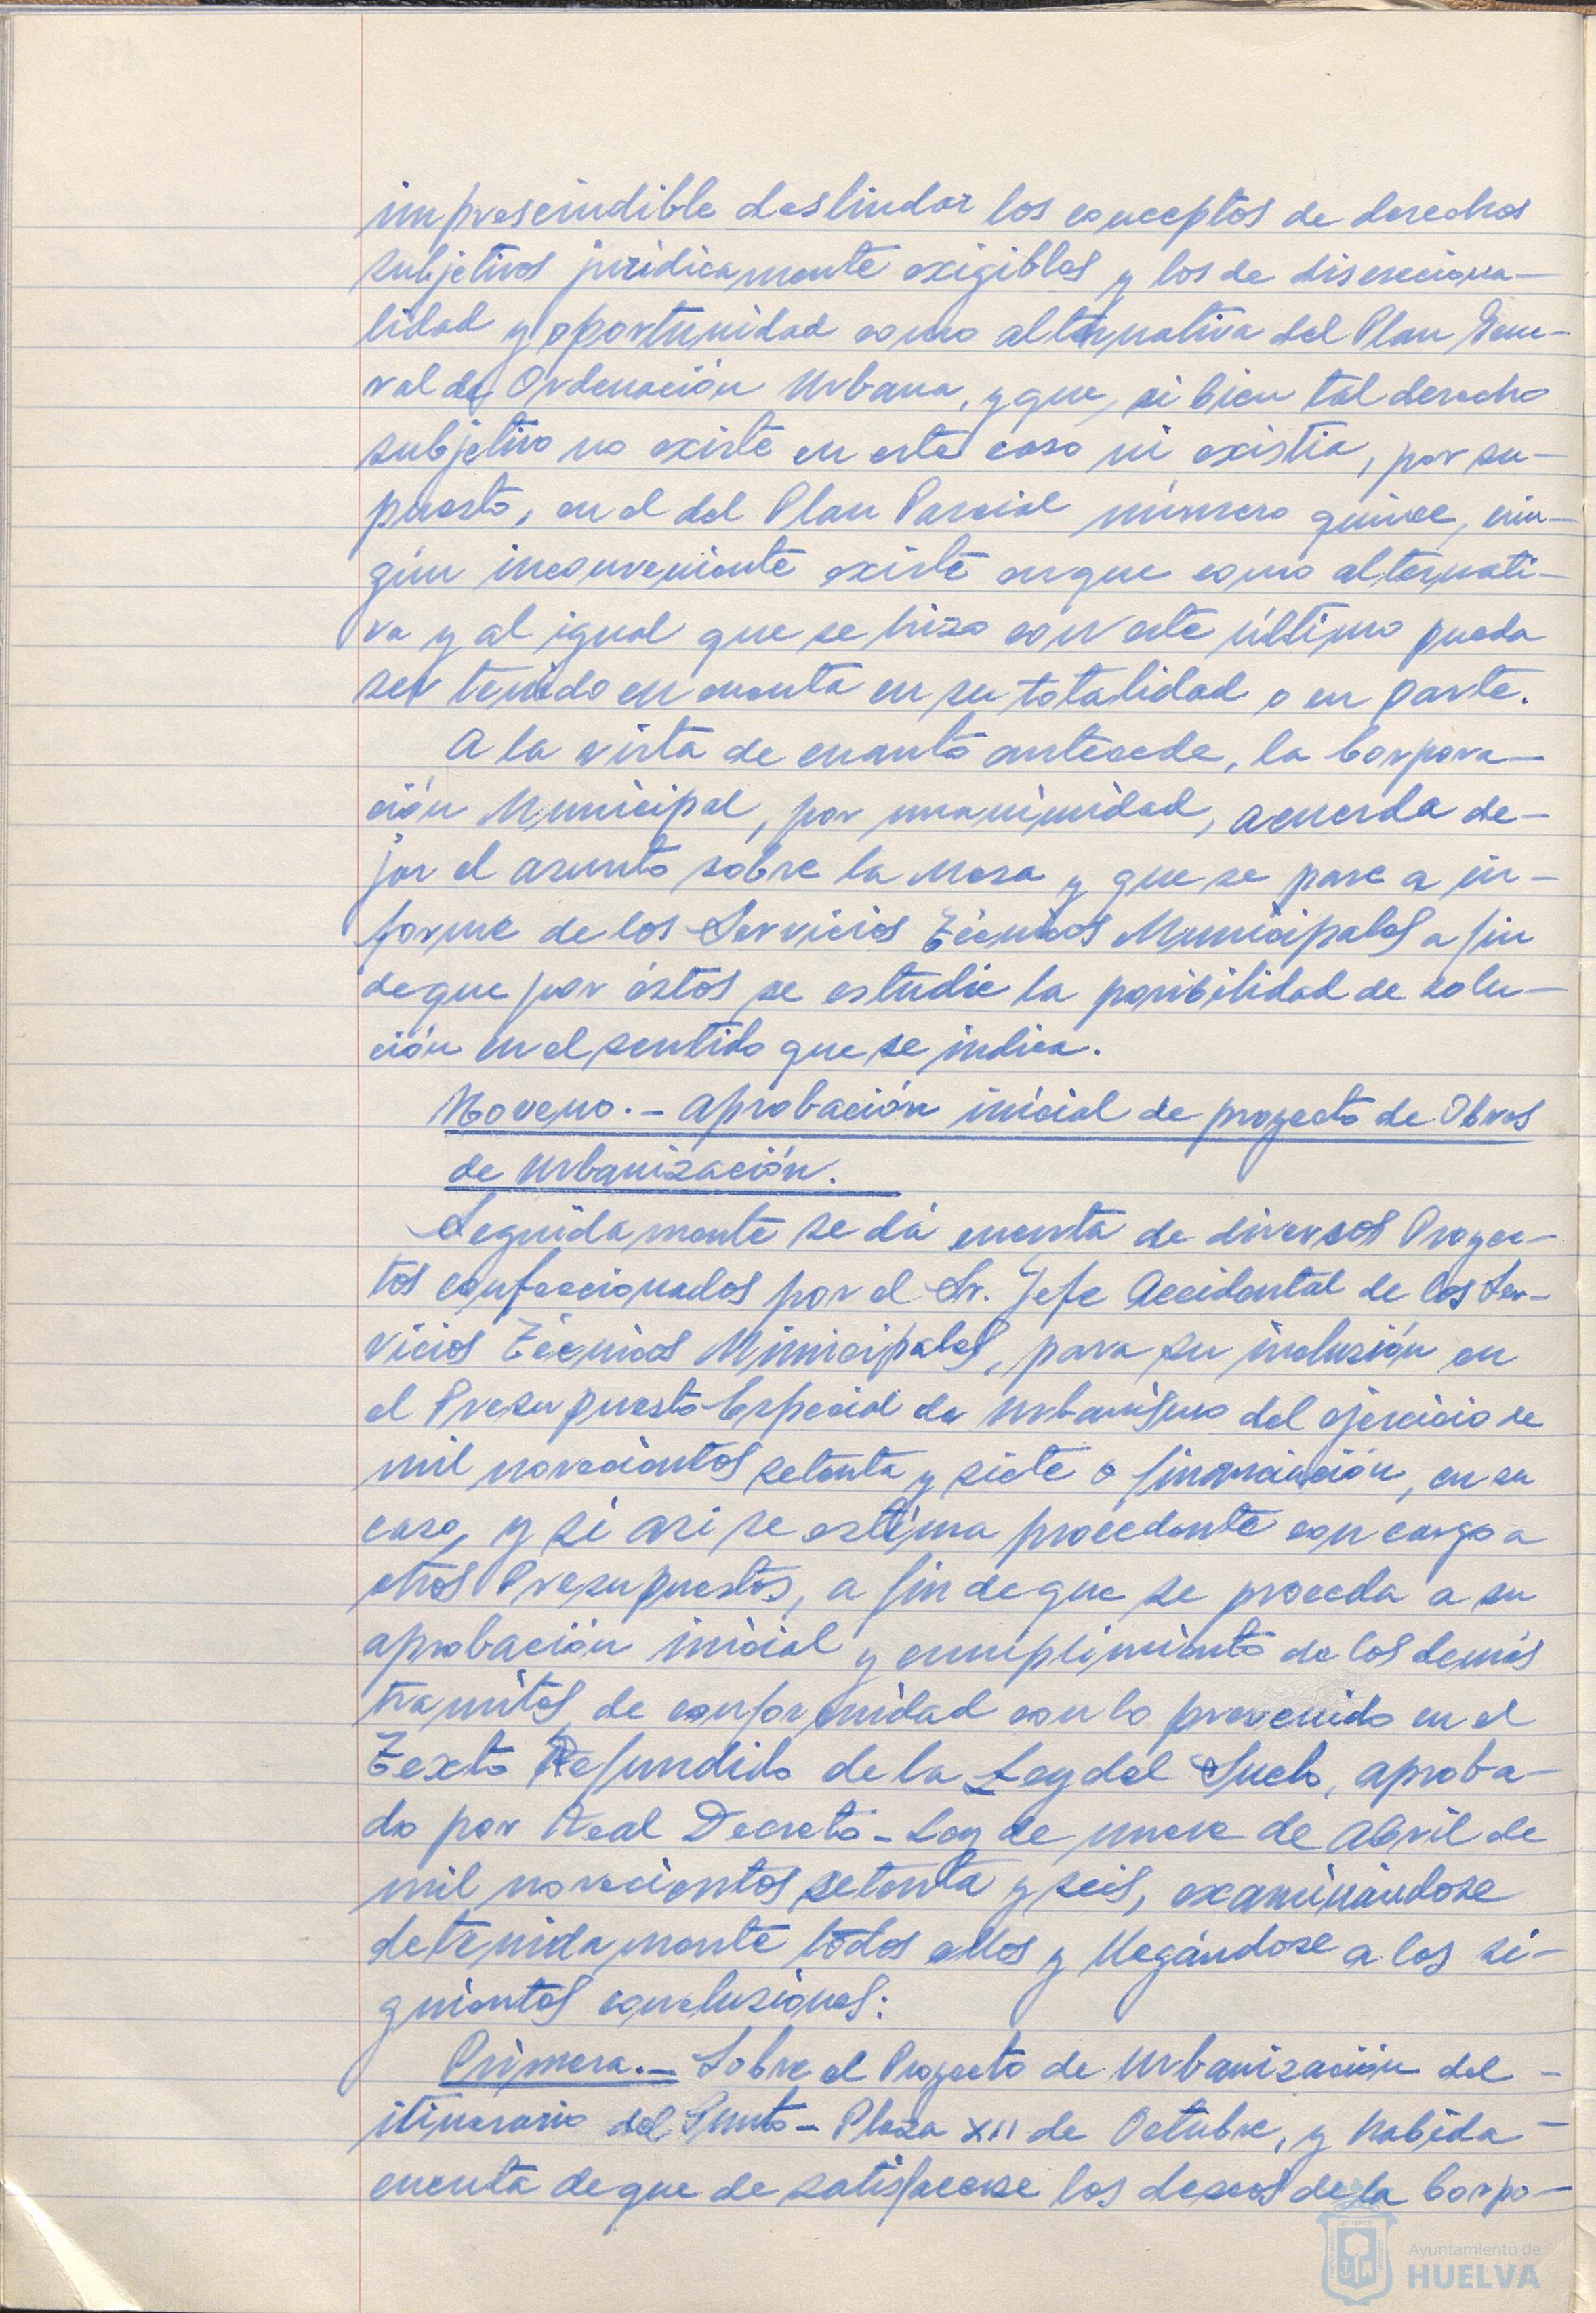 imprescindible deslindar los conceptos de derechos
subjetivos jurídicamente exigibles y los de disceciona-
lidad y oportunidad como alternativa del Plan Gene-
ral de Ordenación Urbana, y que, si bien tal derecho
subjetivo no existe en este caso ni existía, por su-
puesto, en el del Plan Parcial número quince, nin-
gún inconveniente existe en que como alternati-
va y al igual que se hizo con este último pueda
ser tenido en cuenta en su totalidad o en parte.
A la vista de cuanto antecede, la Corpora-
ción Municipal, por unanimidad, acuerda de-
jar el asunto sobre la Mesa y que se pase a in-
forme de los Servicios Técnicos Municipales a fin
de que por éstos se estudie la posibilidad de solu-
ción en el sentido que se indica.
Noveno.- Aprobación inicial de proyecto de Obras
de Urbanización.
Seguidamente se dá cuenta de diversos Proyec-
tos confeccionados por el Sr. Jefe Accidental de los Ser-
vicios Técnicos Municipales, para su inclusión en
el Presupuesto Especial de Urbanismo del ejercicio de
mil novecientos setenta y siete o financiación, en su
caso, y si asi se estima procedente con cargo a
otros Presupuestos, a fin de que se proceda a su
aprobación inicial y cumplimiento de los demás
tramites de conformidad con lo prevenido en el
Texto Refundido de la Ley del Suelo, aproba-
do por Real Decreto-Ley de nueve de Abril de
mil novecientos setenta y seis, examinándose
detenidamente todos ellos y llegándose a las si-
guientes conclusiones:
Primera.- Sobre el Proyecto de Urbanización del -
itinerario del Punto - Plaza XII de Octubre, y habida -
cuenta de que de satisfacerse los deseos de la Corpo-
Ayuntamiento de
HUELVA